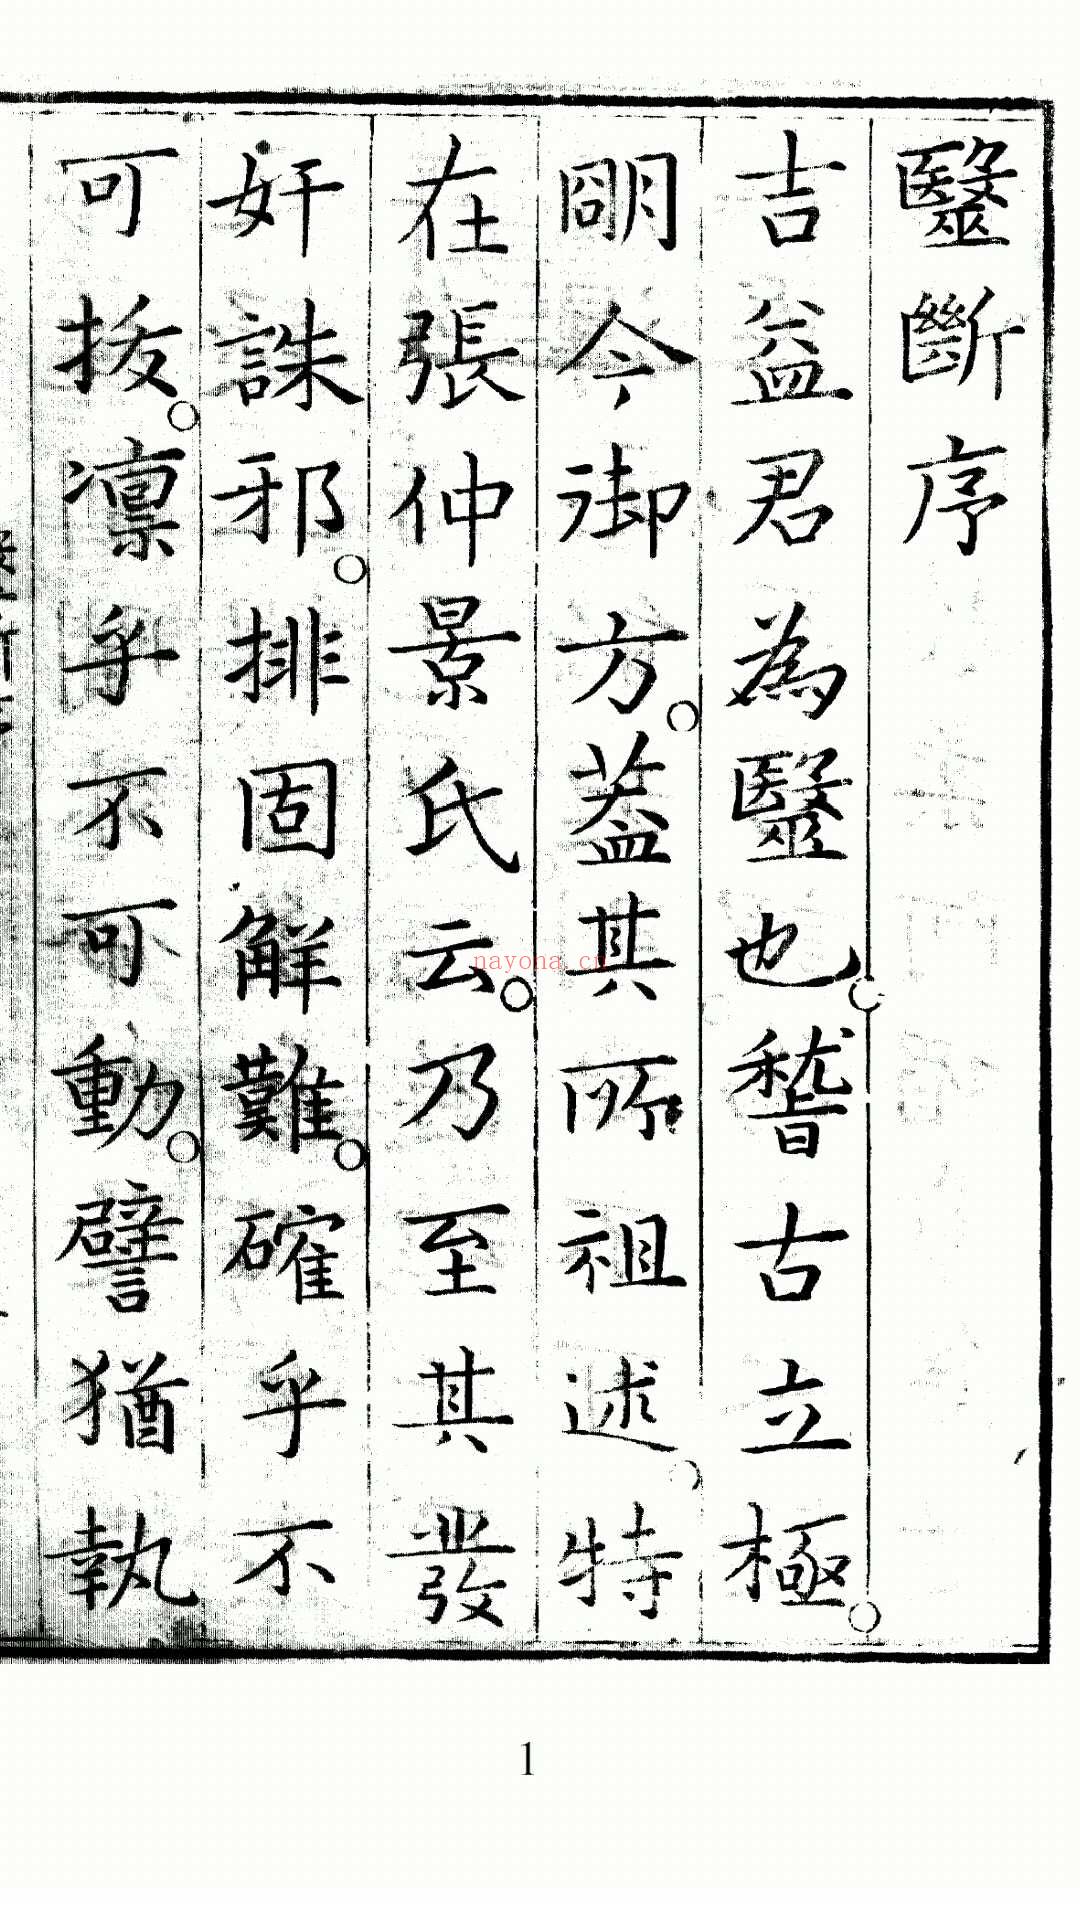 毉斷序
吉益君為毉也。稽古立極。
朙今御方。葢其所祖述。特
在張仲景氏云。乃至其發
奸誅邪。排固解難。確乎不
可拔。凛乎不可動。譬猶執
nayona.cn
1